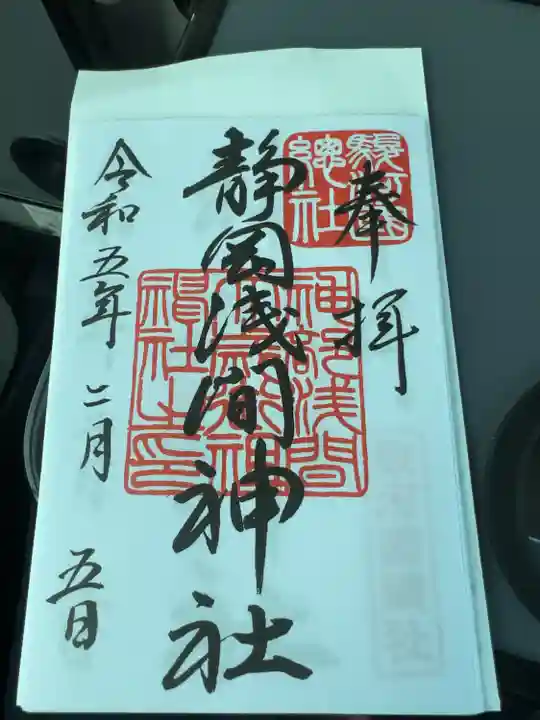 奉拝
駿河國
總社
静岡浅間神社
神部浅間
大歳御祖
神社之印
令和五年二月五日